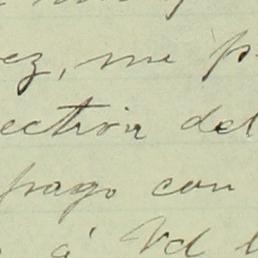 ez, me p
ection del
pago con
á Vd l